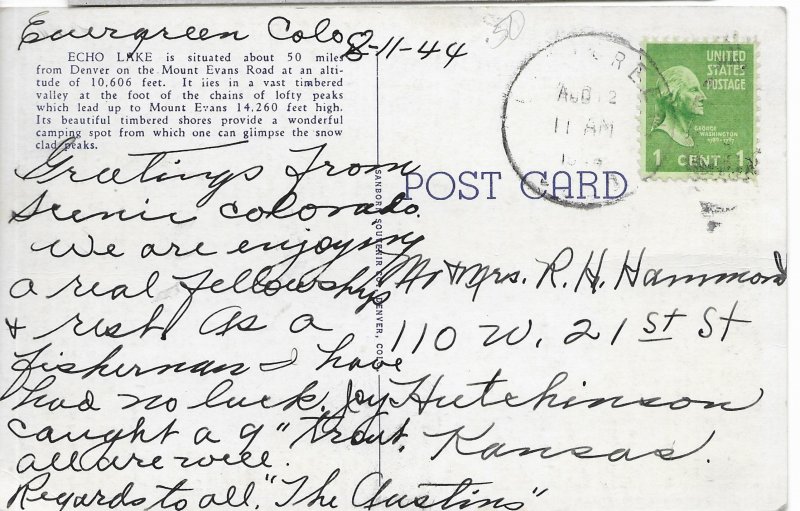 Evergreen Colo 8-11-44
.50
ECHO LAKE is situated about 50 miles
from Denver on the Mount Evans Road at an alti-
tude of 10,606 feet. It lies in a vast timbered
valley at the foot of the chains of lofty peaks
which lead up to Mount Evans 14,260 feet high.
Its beautiful timbered shores provide a wonderful
camping spot from which one can glimpse the snow
clad peaks.
Greetings from
scenic Colorado.
We are enjoying
a real fellowship
& rest. As a
fisherman I have
had no luck. Joy
caught a 9" trout.
all are well.
Regards to all. "The Austins"
SANBORN SOUVENIR CO., DENVER, COLO.
POST CARD
AUG 12
11 AM
UNITED
STATES
POSTAGE
GEORGE
WASHINGTON
1789-1797
1 CENT 1
Mr & Mrs. R. H. Hammond
110 W. 21st St
Hutchinson
Kansas.